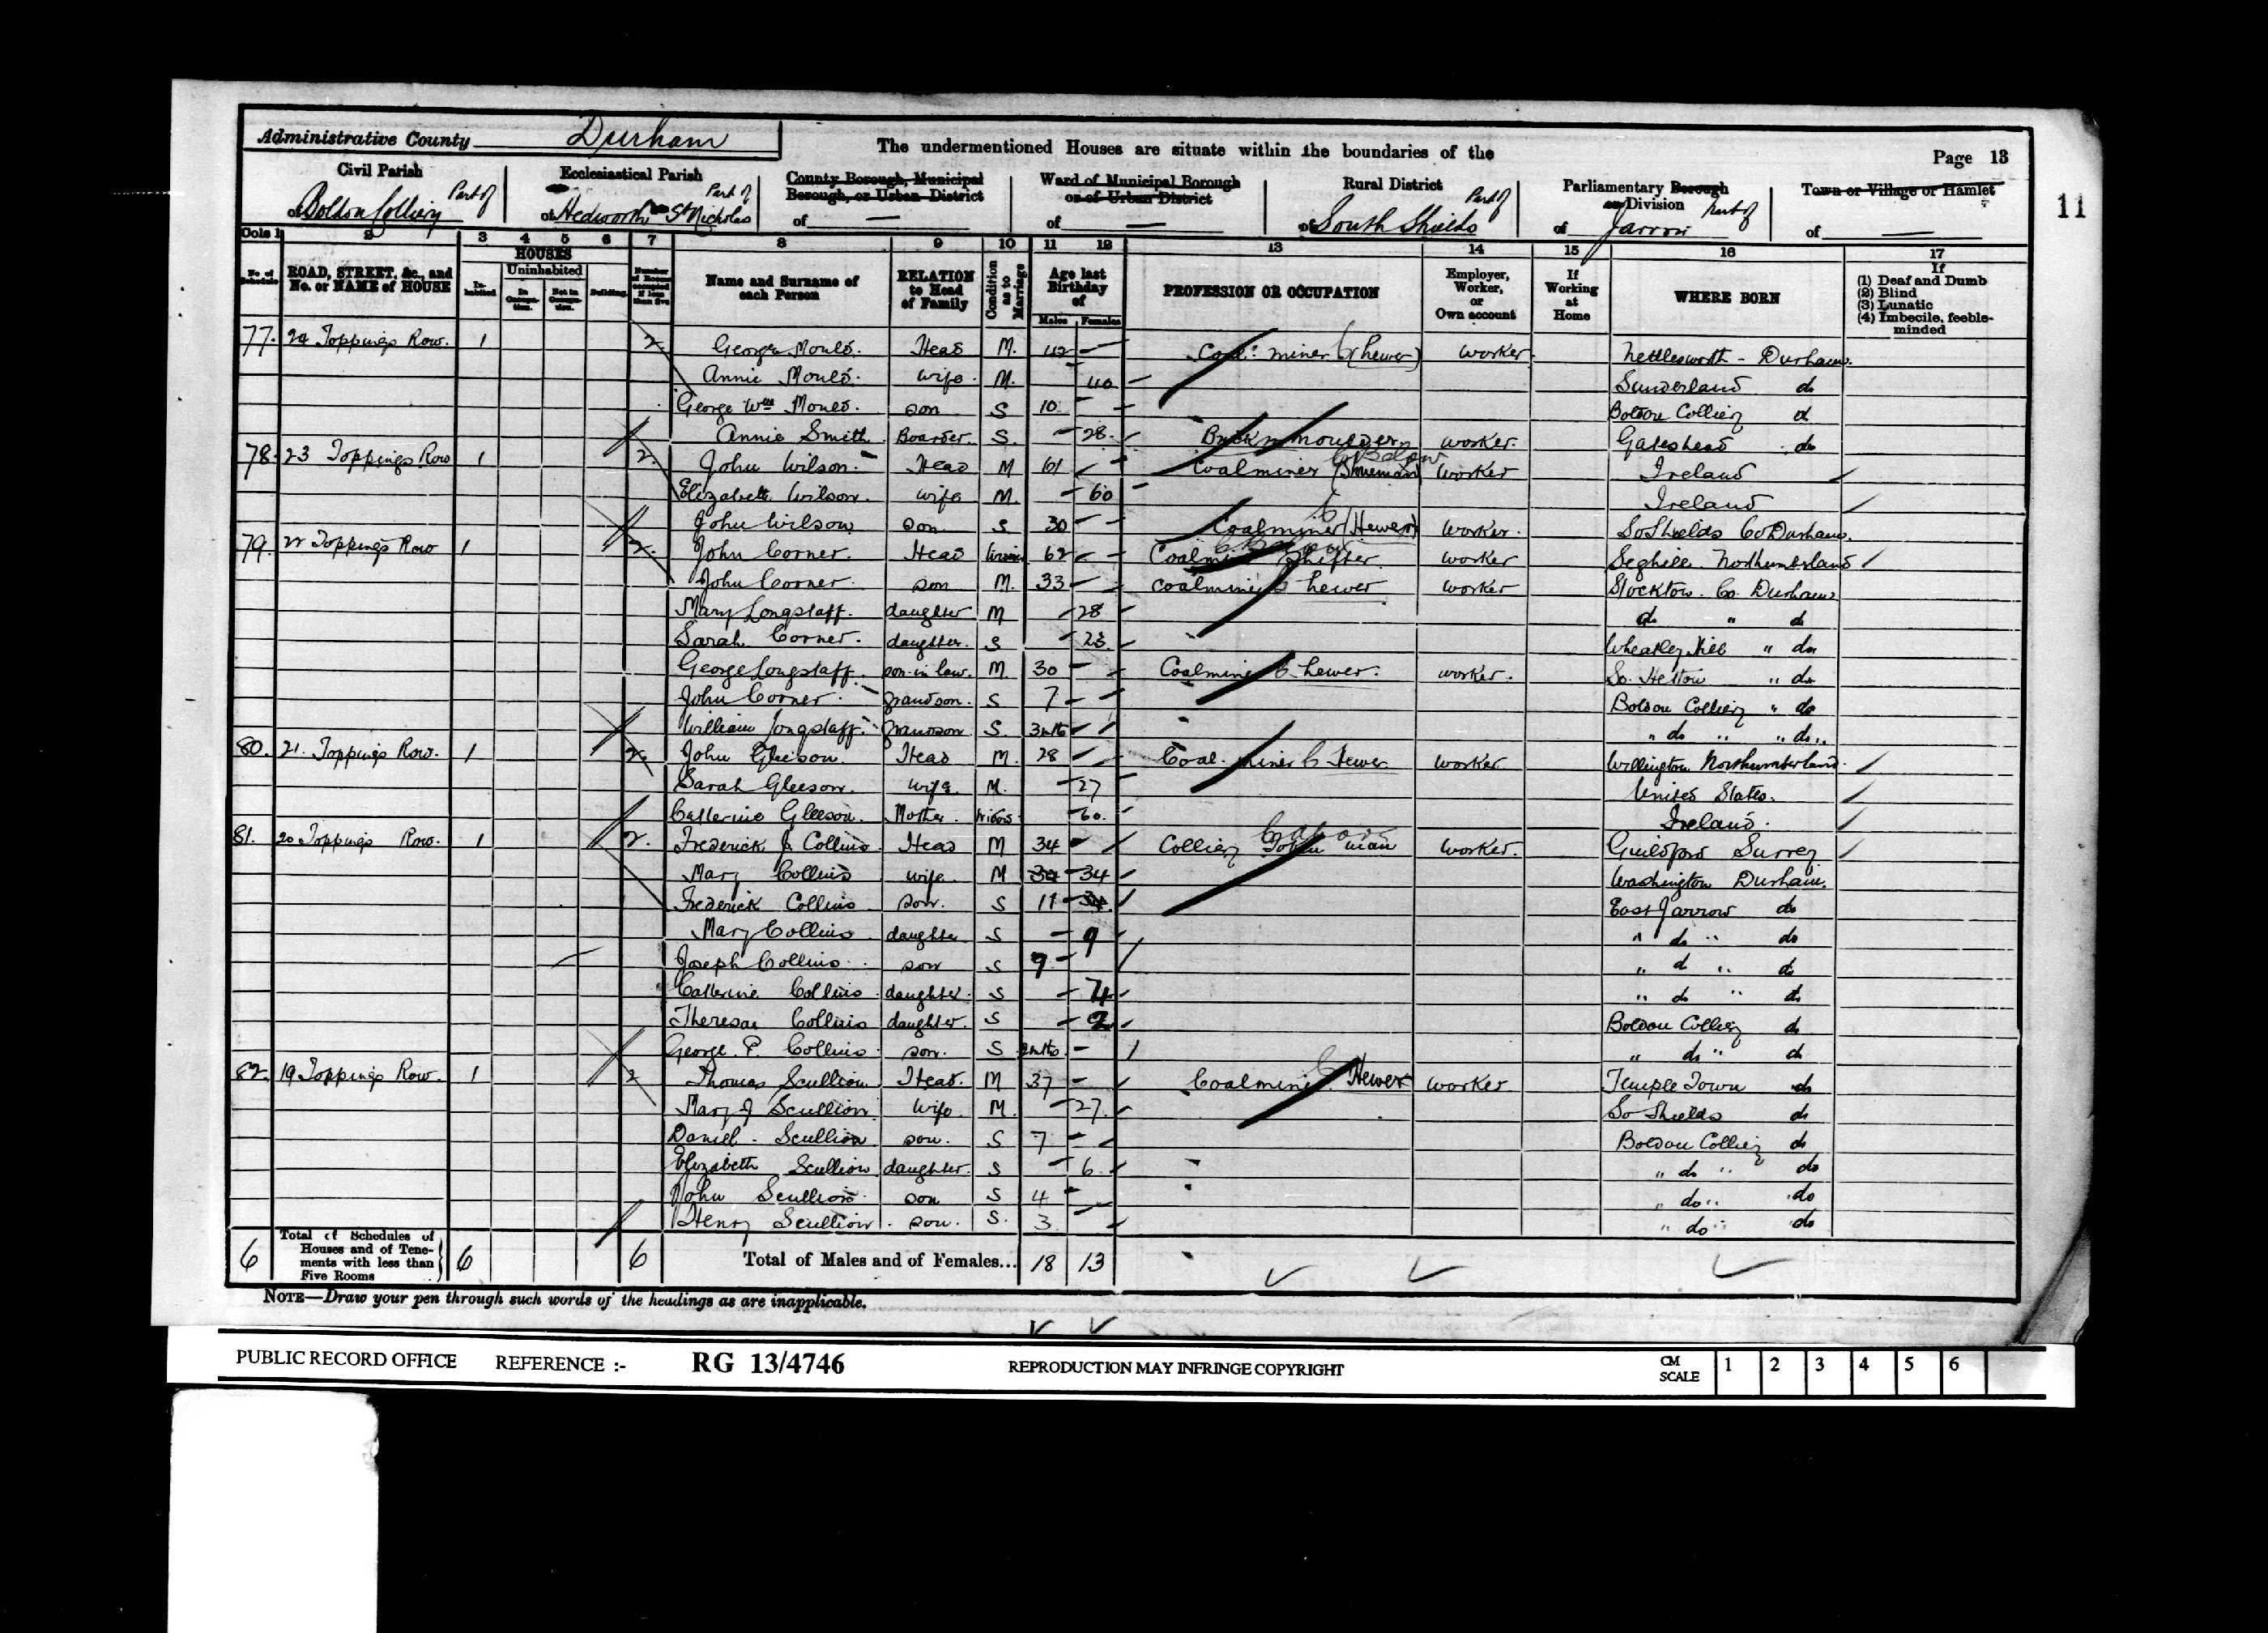 Administrative County Durham
The undermentioned Houses are situate within the boundaries of the
Page 13
11
Civil Parish
Part of
of Boldon Colliery
Ecclesiastical Parish
Part of
of Hedworth St Nicholas
County Borough, Municipal
Borough, or Urban District
of —
Ward of Municipal Borough
or of Urban District
of —
Rural District
Part of
of South Shields
Parliamentary Borough
or Division Part of
of Jarrow
Town or Village or Hamlet
of —
Cols 1 2 3 4 5 6 7 8 9 10 11 12 13 14 15 16 17
No. of Schedule
ROAD, STREET, &c., and
No. or NAME of HOUSE
HOUSES
Inhabited
Uninhabited
In Occupation.
Not in Occupation.
Building.
Number of Rooms occupied if less than five
Name and Surname of
each Person
RELATION
to Head
of Family
Condition as to Marriage
Age last
Birthday
of
Males Females
PROFESSION OR OCCUPATION
Employer,
Worker,
or
Own account
If
Working
at
Home
WHERE BORN
If
(1) Deaf and Dumb
(2) Blind
(3) Lunatic
(4) Imbecile, feeble-
minded
77. 24 Toppings Row. 1 2 George Mould. Head M. 42 Coal miner (hewer) worker Nettlesworth - Durham.
Annie Mould. wife. M. 40 Sunderland do
George Wm Mould. son S 10 Boldon Colliery d
Annie Smith Boarder. S. 28 Brick moulder worker. Gateshead do
78. 23 Toppings Row 1 2. John Wilson. Head M 61 Coalminer worker Ireland
Elizabeth Wilson. wife M. 60 Ireland
John Wilson son S 30 Coalminer (Hewer) worker. So Shields Co Durham.
79. 22 Toppings Row 1 2. John Corner. Head 62 Shifter worker Seghill. Northumberland
John Corner. son M. 33 coalminer hewer worker Stockton. Co. Durham
Mary Longstaff. daughter M 28 do " do
Sarah Corner. daughter. S 23 Wheatley Hill " do
George Longstaff. son-in-law. M. 30 Coalminer hewer. worker. So. Hetton " do
John Corner grandson. S 7 Boldon Colliery " do
William Longstaff. grandson S. 3 mths " do " " do "
80. 21. Toppings Row. 1 2. John Gleeson. Head M. 28 Coal. miner Hewer worker Willington Northumberland.
Sarah Gleeson. wife. M. 27 United States.
Catherine Gleeson. Mother. Widow 60. Ireland.
81. 20 Toppings Row. 1 2. Frederick J Collins. Head M 34 Colliery man worker. Guildford Surrey
Mary Collins wife M 34 34 Washington Durham.
Frederick Collins son. S 11 34 East Jarrow do
Mary Collins daughter S 9 " do " do
Joseph Collins. son S 9 " d " do
Catherine Collins daughter. S 4 " do " do
Theresa Collins daughter. S 2 Boldon Colliery do
George. P. Collins. son. S 2 mths. " do " do
82. 19 Toppings Row. 1 2 Thomas Scullion Head. M 37 Coalminer Hewer worker Temple Town do
Mary J Scullion Wife M. 27. So Shields do
Daniel. Scullion son. S 7 Boldon Colliery do
Elizabeth Scullion daughter. S 6. " do " do
John Scullion. son S 4 " do " do
Henry Scullion. son. S. 3 " do " do
6 Total of Schedules of
Houses and of Tene-
ments with less than
Five Rooms 6 6 Total of Males and of Females... 18 13
NOTE—Draw your pen through such words of the headings as are inapplicable.
PUBLIC RECORD OFFICE REFERENCE :- RG 13/4746 REPRODUCTION MAY INFRINGE COPYRIGHT CM SCALE 1 2 3 4 5 6